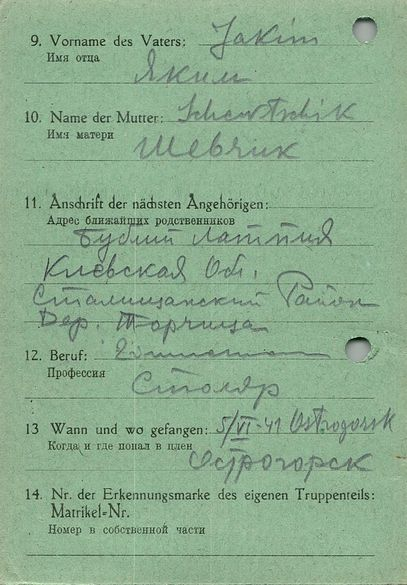 9. Vorname des Vaters: Jakim
Имя отца
Яким
10. Name der Mutter: Schewtschik
Имя матери
Шевчик
11. Anschrift der nächsten Angehörigen:
Адрес ближайших родственников
Киевская Обл.
Район
Дер. Торчица
12. Beruf:
Профессия
Столяр
13 Wann und wo gefangen: 5/VI-41 Ostrogorsk
Когда и где попал в плен
Острогорск
14. Nr. der Erkennungsmarke des eigenen Truppenteils:
Matrikel-Nr.
Номер в собственной части